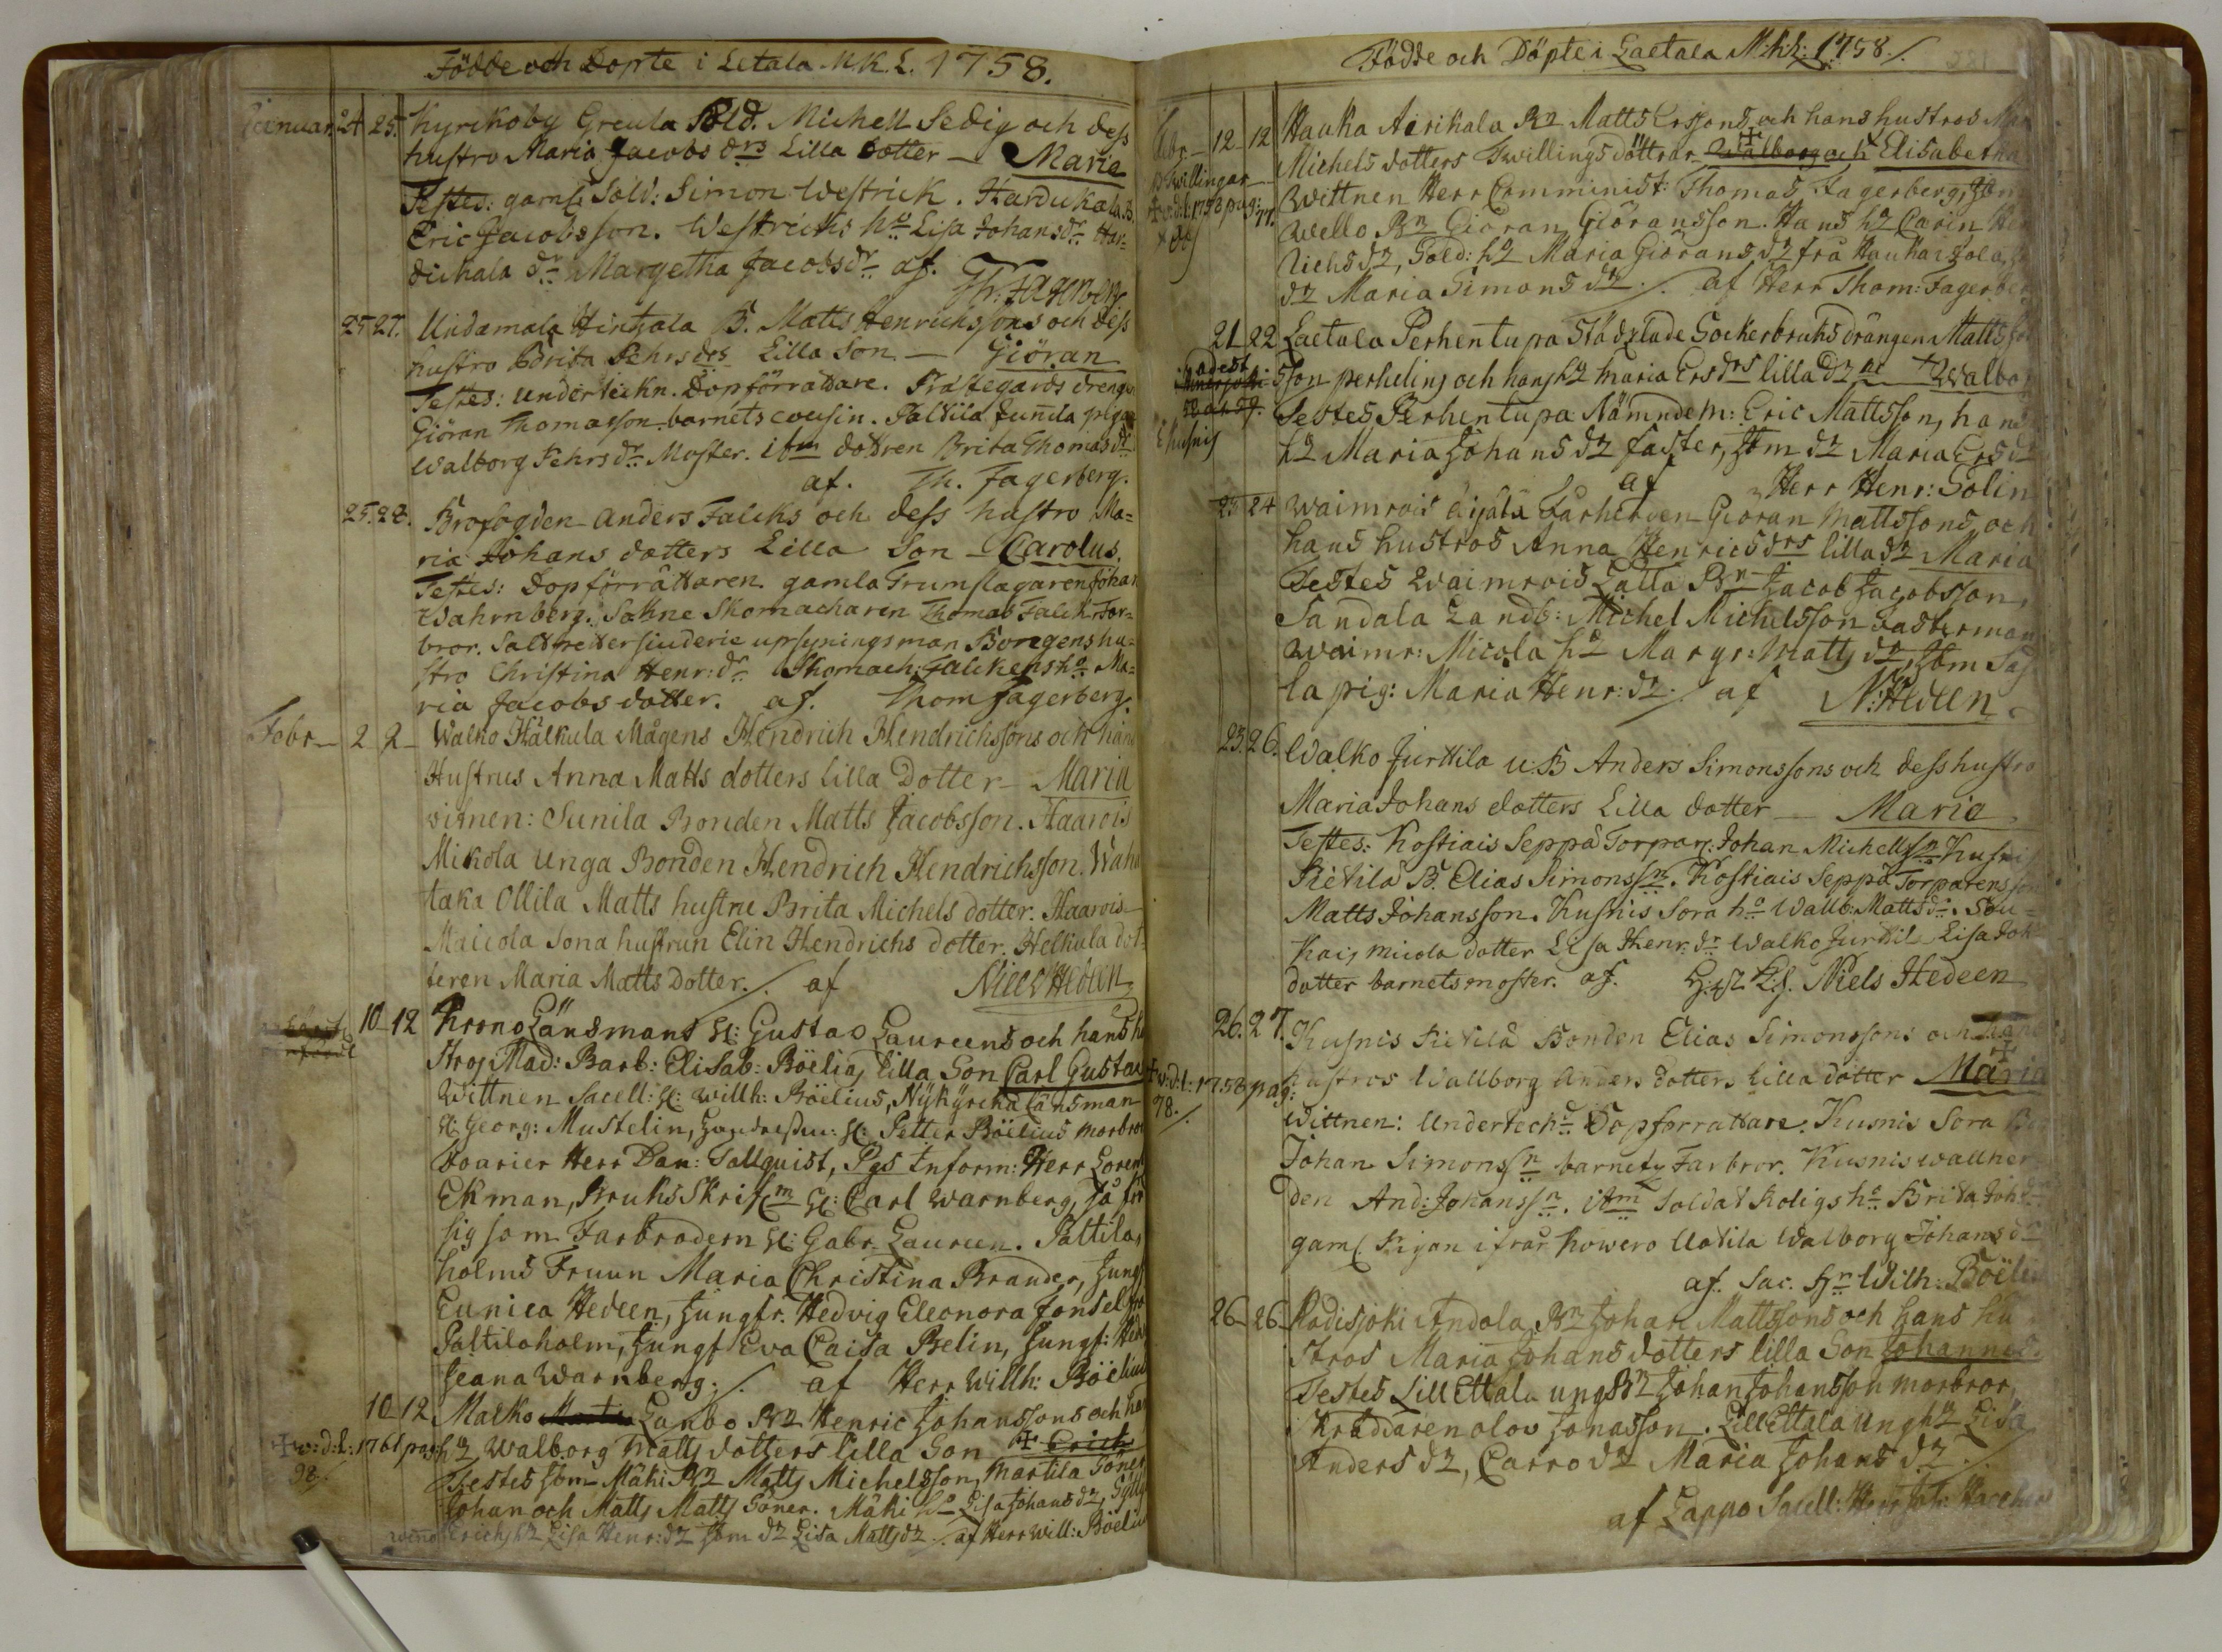 Födde och Döpte i Letala M.K.L. 1758.
Januar. 24 25. Kyrkoby Greula Sold. Michell Sedig och dess
hustro Maria Jacobs drs Lilla dotter — Maria
Testes: gaml. Sold: Simon Westrick. Hardukala B.
Eric Jacobsson. Westricks ho Lisa Johansdr Har-
dickala dr Margetha Jacobsdr af. Th: Fagerberg
25 27. Undamala Hintzala B. Matts Henrichssons och dess
hustro Brita Pehrsdrs Lilla Son — Giöran
Testes: underteckn. Dopförrättare. Prästegårds drengen
Giöran Thomasson barnets cousin. Paltila Junila pigan
Walborg Pehrsdr Moster. item dottren Brita Thomasdr
af. Th. Fagerberg.
25. 28. Brofogden Anders Falcks och dess hustro Ma=
ria Johans dotters Lilla Son — Carolus.
Testes: Dopförrättaren gamla Trumslagaren Johan
Wahrnberg. Sahne Skomacharen Thomas Falck, Far-
bror. Saltpettersiuderie upsyningsman Boregens hu=
stro Christina Henr: dr Skomach: Falckens ho Ma=
ria Jacobs dotter. af. Thom Fagerberg.
Febr— 2 2— Walko Hälkula Mågens Hendrich Hendrichssons och hans
Hustrus Anna Matts dotters lilla Dotter — Maria
vitnen: Sunila Bonden Matts Jacobsson. Haarois
Mikola unga Bonden Hendrich Hendrichsson. Waha
taka Ollila Matts hustru Brita Michels dotter. Haarois
Maicola Sona hustrun Elin Hendrichs dotter. Helkula dot-
teren Maria Matts Dotter./. af Niels Hedeen
10 12 Krono Länsmans H: Gustav Laureens och hans hu
stros Mad: Barb: Elisab: Böelias lilla Son Carl Gustav
Wittnen Sacell: H: Willh: Böelius, Nykyrcka Länsman
H: Georg: Mustelin, H: Petter Böelius morbror
Herr Dan: Tallquist, Pgs Inform: Herr Lorens
Ekman, Bruks Skrifm H: Carl Warnberg, så från
sig som Farbrodern H: Gabr Laureen. Paltila,
holms Fruun Maria Christina Brander, Jungf
Eunica Hedeen, Jungfr. Hedvig Eleonora Jonsel från
Paltilaholm, Jungf Eva Caisa Belin, Jungf: Hedv
Jeana Warnberg:/. af Herr Willh: Böelius
10 12 Malko Lanbo Bn Henric Johanssons och hans
+ w:d:l: 1761 pag: 98./. hu Walborg Matts dotters lilla Son + Erich
Testes Jtem Mäki Bn Matts Michelsson, Martila Söner
Johan och Matts Matts Söner. Mäki ho Lisa Johans dr,
Erichs hu Lisa Henr: dr Jtem dr Lisa Matts dr./. af Herr Will: Böelius
Födde och Döpte i Laetala M:k:L: 1758./.
Febr— 12 12 Hauka Airikala Bn Matts Erssons och hans hustros
Twillingar Michels dotters Twillings döttrar + Walborg och Elisabetha
+ w:d:l: 1758 pag: 77. Wittnen Herr Comminist: Thomas Fagerberg, Jtem
Wello Bn Giöran Giöransson. Hans hu Carin Hen
richs dr, Sold: hu Maria Giörans dr frå Haukaitola,
dr Maria Simons dr./. af Herr Thom: Fagerberg
21 22 Laetala Perhentupa Städzlade Sockerbruks drängen Matts
sson perheling och hans hu Maria Ersdrs lilla dr + Walborg
Testes Perhentupa Nämndem: Eric Mattsson, hans
hu Maria Johans dr faster, Jtem dr Maria Ers dr
af Herr Henr: Solin
23 24 Waimrois äijälä Fårherden Giöran Mattssons och
hans hustros Anna Henricsdrs lilla dr Maria
Testes Waimrois Latta Bn Jacob Jacobsson,
Sandala Landb: Michel Michelsson
Waimr: Micola ho Margr: Matts dr, Jtem
la pig: Maria Henr: dr./. af N: Hedeen
25. 26. Walko Jurttila U:B Anders Simonssons och dess hustro
Maria Johans dotters Lilla dotter — Maria
Testes: Kostiais Seppä Torpar: Johan Michellsn Kusnis
Pietilä B. Elias Simonssn. Kostiais Seppä Torparens son
Matts Johansson. Kusnis Sora ho Walb: Mattsdr. Sou=
kais micola dotter Lisa Henr: dr Walko Jurttil Lisa Joh
dotter barnets moster. af. Niels Hedeen
26. 27. Kusnis Pietilä Bonden Elias Simonssons och hans
+ w:d:l: 1758 pag: 78./. hustros Wallborg Anders dotters Lilla dotter + Maria
Wittnen: Undertecknd Dopförrattare. Kusnis Sora
Johan Simonssn barnets Farbror. Kusnis wallher
den And: Johanssn. item Soldat Roligs ho Brita Joh
gaml. Pigan ifrån Kowero Uotila Walborg Johans dr
af. Sac. Hr Wilh: Böelius
26 26 Radisjoki Andola Bn Johan Mattssons och hans hu
stros Maria Johans dotters lilla Son Johannes.
Testes Lill Ettala ung Bn Johan Johansson morbror,
Skräddaren olov Jonasson. Lill Ettala ung hu Lisa
Anders dr, Carro dr Maria Johans dr./.
af Lappo Sacell: Herr Joh: